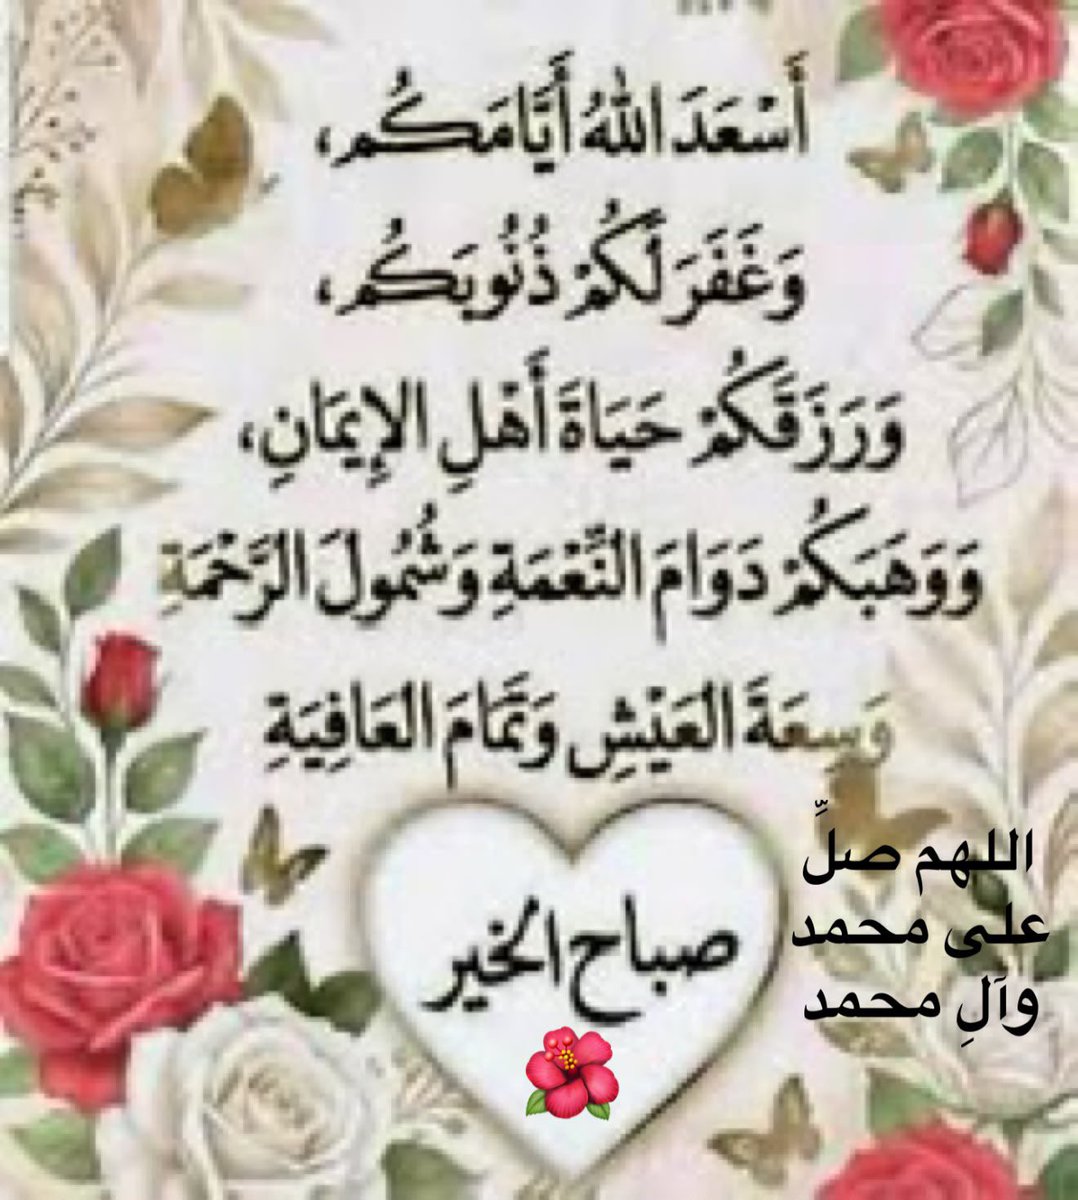 أَسْعَدَ اللهُ أَيَّامَكُم،
وَغَفَرَ لَكُمْ ذُنُوبَكُم،
وَرَزَقَكُمْ حَيَاةَ أَهْلِ الإِيمَانِ،
وَوَهَبَكُمْ دَوَامَ النِّعْمَةِ وَشُمُولَ الرَّحْمَةِ
وَسِعَةَ العَيْشِ وَتَمَامَ العَافِيَةِ
صباح الخير
اللهم صلِّ
على محمد
وآلِ محمد